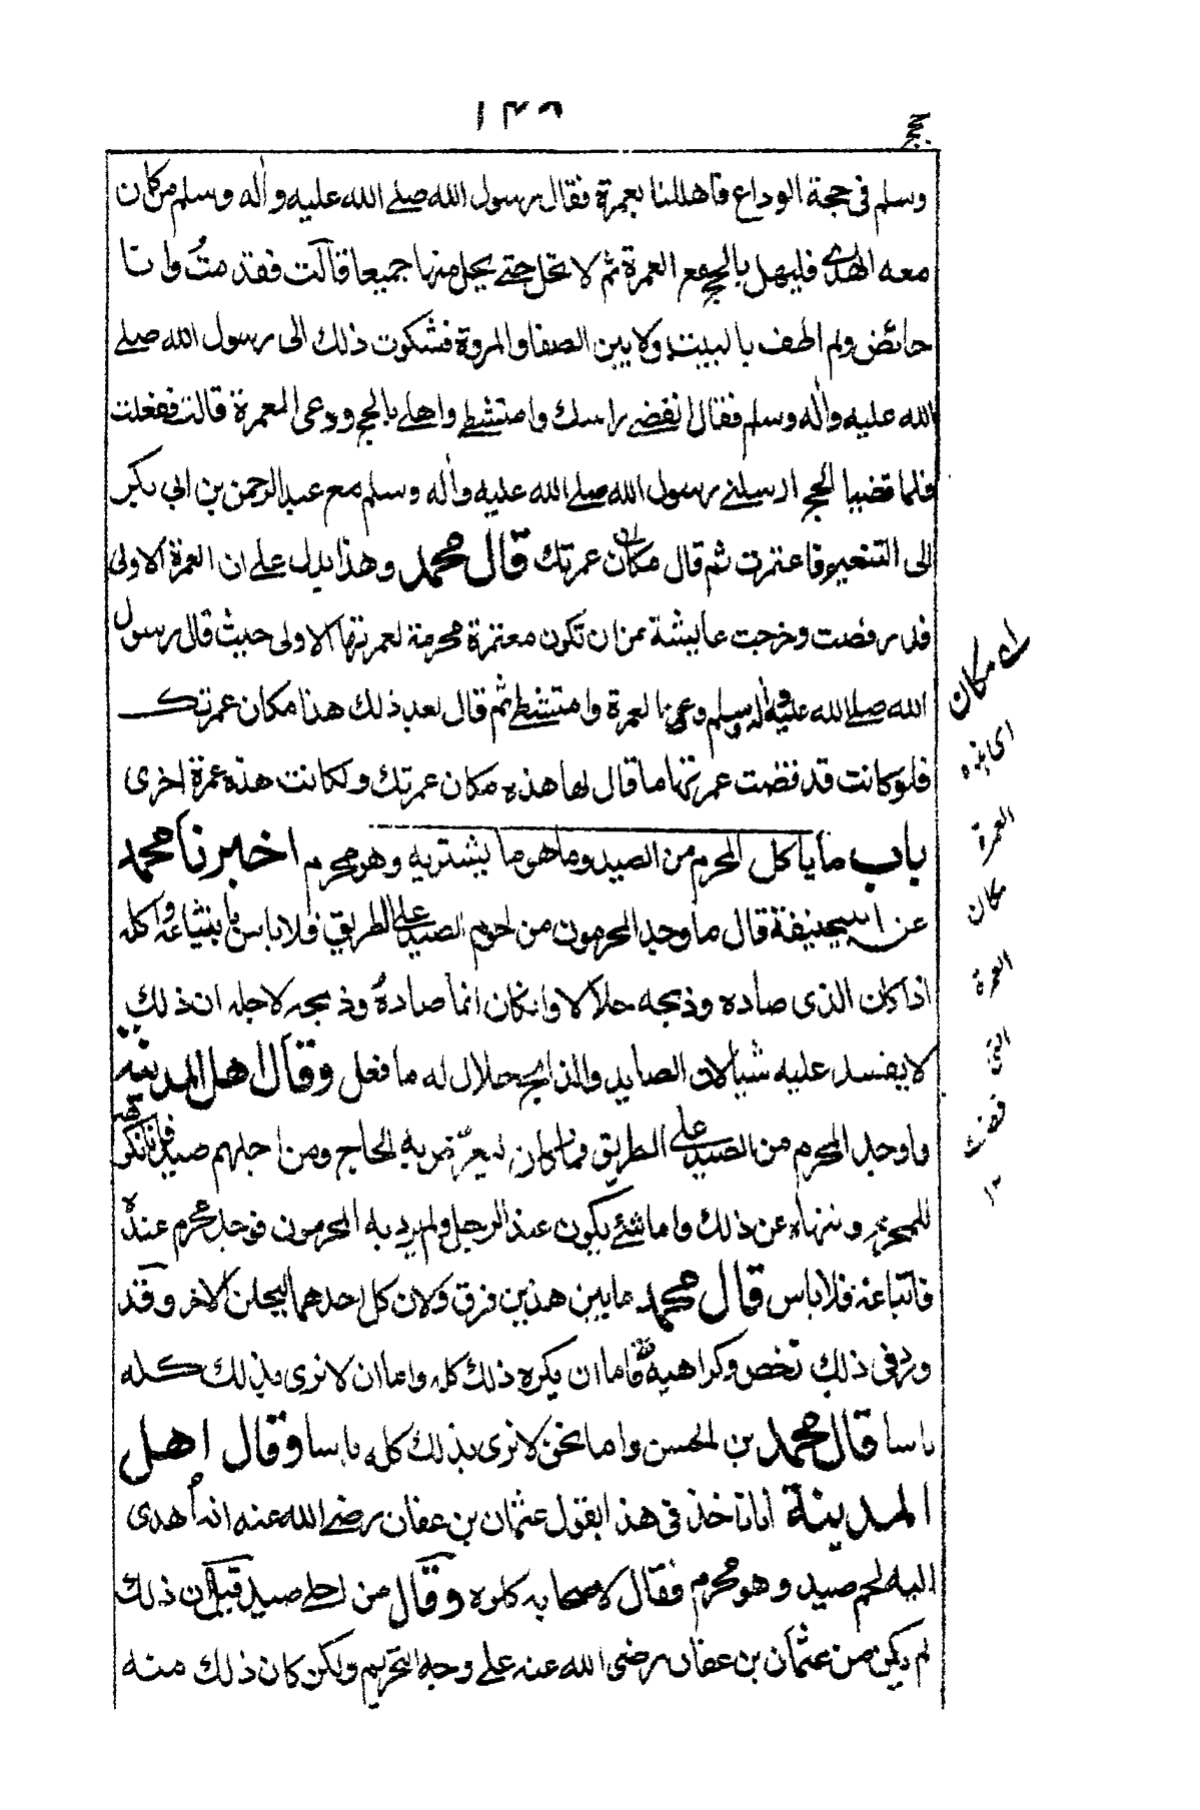 ١٣٦
حجج
وسلم فى حجة الوداع فاهللنا بعمرة فقال رسول الله صلے الله عليه واٰله وسلم من كان
معه الهدى فليهل بالحج مع العمرة ثم لا تحل حتے يحل منهما جميعا قالت فقدمتُ وانا
حائض ولم اطف بالبيت ولا بين الصفا والمروة فشكوت ذلك الى رسول الله صلے
الله عليه واٰله وسلم فقال انقضے راسك وامتشطے واهلے بالحج ودعى العمرة قالت ففعلت
فلما قضينا الحج ارسلنے رسول الله صلے الله عليه واٰله وسلم مع عبد الرحمن بن ابي بكر
الى التنعيم فاعتمرت ثم قال مكان عمرتك قال محمد وهذا يدل علے ان العمرة الاولى
قد رفضت وخرجت عايشة من ان تكون معتمرة محرمة لعمرتها الاولى حيث قال رسول
الله صلے الله عليه واٰله وسلم ودعى العمرة وامتشطے ثم قال بعد ذلك هذا مكان عمرتك
فلو كانت قد قضت عمرتها ما قال لها هذه مكان عمرتك ولكانت هذه عمرة اخرى
باب ما ياكل المحرم من الصيد وما هو ما يشتريه وهو محرم اخبرنا محمد
عن ابيحنيفة قال ما وجد المحرمون من لحوم الصيد على الطريق فلا باس بابتياعه واكله
اذا كان الذى صاده وذبحه حلالا وان كان انما صادهُ وذبحه لاجله ان ذلك
لا يفسد عليه شيا لان الصايد والذابح حلال له ما فعل وقال اهل المدينة
ما وجد المحرم من الصيد على الطريق فما كان يعرّض به الحاج ومن اجلهم صيد فانا نكرهه
للمحرم وننهاه عن ذلك واما شئ يكون عند الرجل ولم يرد به المحرمون فوجده محرم عنده
فابتاعه فلا باس قال محمد ما بين هذين فرق ولان كل احدهما ليحلن الاخر وقد
ورد فى ذلك ترخص وكراهية فاما ان يكره ذلك كله واما ان لا نرى بذلك كله
باسا قال محمد بن الحسن واما نحن لا نرى بذلك كله باسا وقال اهل
المدينة انا ناخذ فى هذا بقول عثمان بن عفان رضے الله عنه انه اُهدى
اليه لحم صيد وهو محرم فقال لاصحابه كلوه وقال من اجلے صيد قيل ان ذلك
لم يكن من عثمان بن عفان رضى الله عنه علے وجه التحريم ولكن كان ذلك منه
اے مكان
اى هذه
العمرة
مكان
العمرة
التى
قضت
١٢